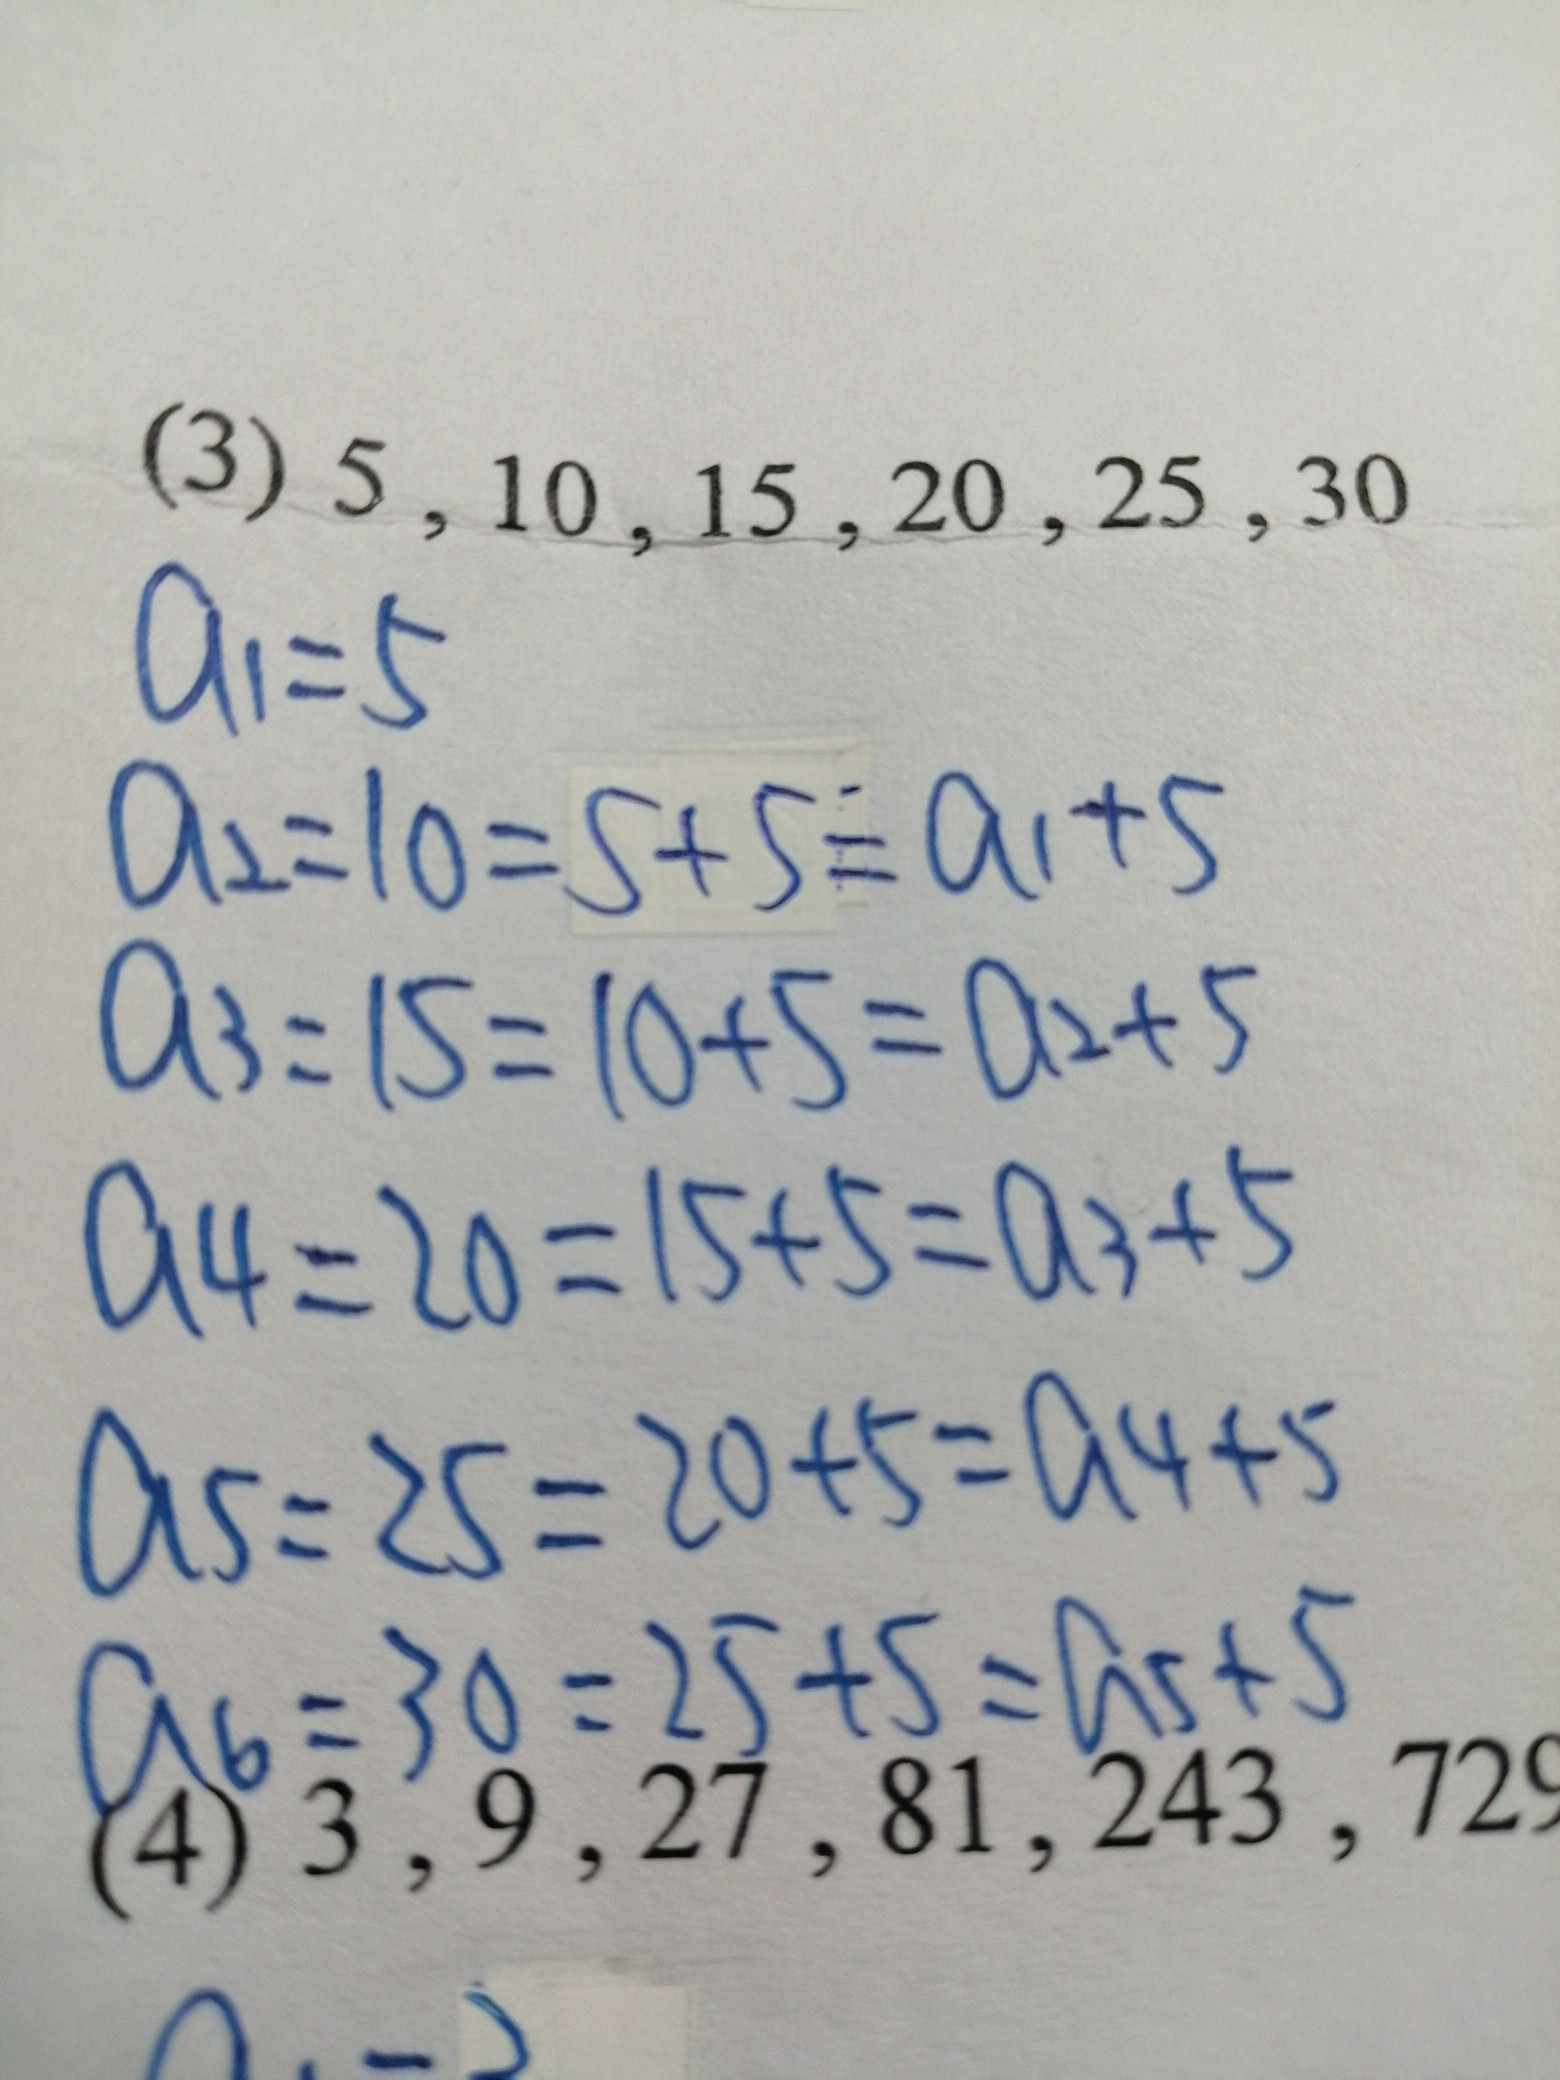 (3) 5 , 10 , 15 , 20 , 25 , 30
a1=5
a2=10=5+5=a1+5
a3=15=10+5=a2+5
a4=20=15+5=a3+5
a5=25=20+5=a4+5
a6=30=25+5=a5+5
(4) 3 , 9 , 27 , 81 , 243 , 729